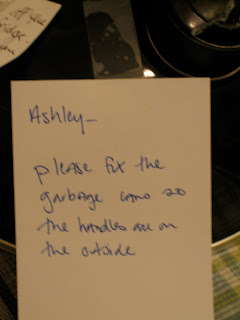 Ashley—
please fix the
garbage cans so
the handles are on
the outside